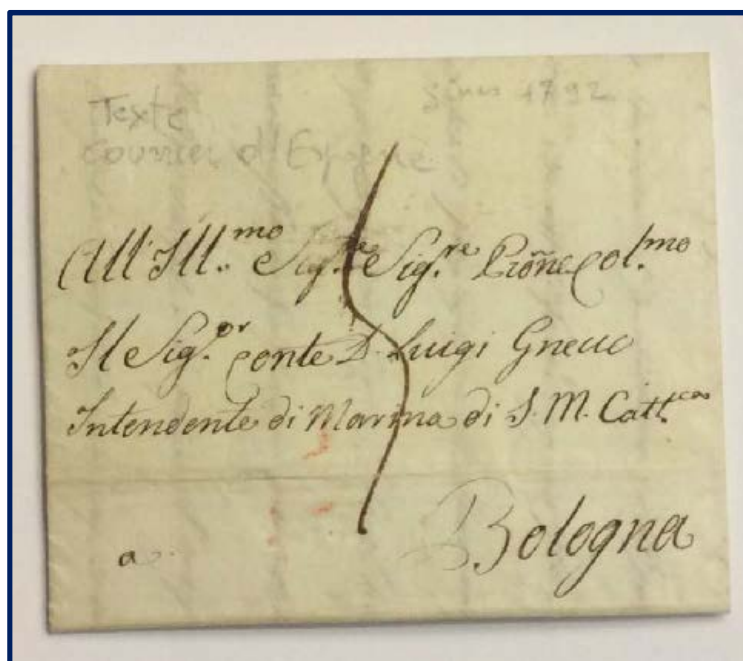 Texte 1792
courrier d'Espagne
All' Ill.mo Sig.re Sig.re Prone Col.mo
Il Sig.or Conte D. Luigi Gnecco
Intendente di Marina di S. M. Catt.ca
a Bologna